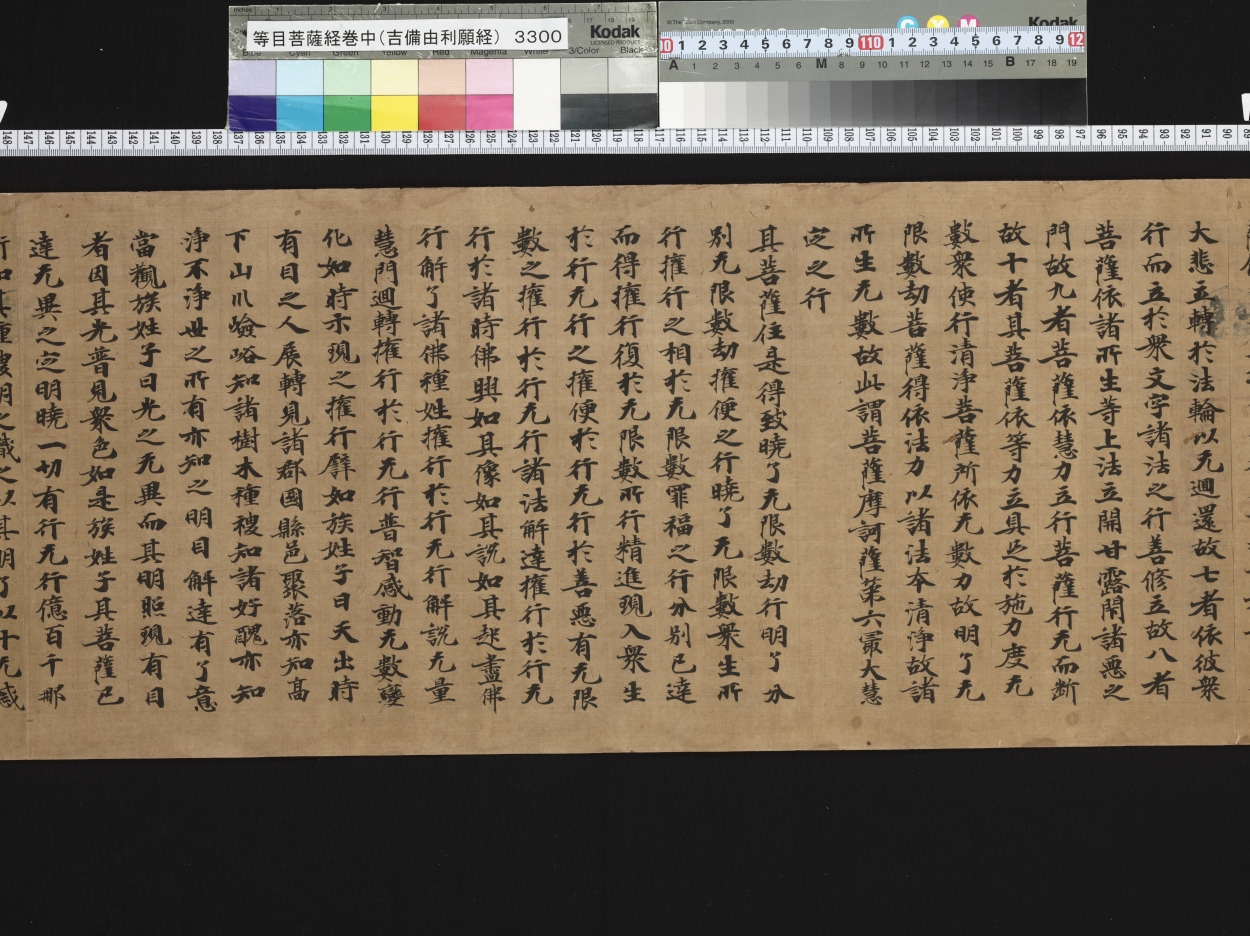 等目菩薩経巻中(吉備由利願経) 3300
Kodak
Kodak
大悲立轉於法輪以无迴還故七者依彼衆
行而立於衆文字諸法之行善修立故八者
菩薩依諸所生等上法立開甘露閇諸惡之
門故九者菩薩依慧力立行菩薩行无而断
故十者其菩薩依等力立具足於施力度无
數衆使行清淨菩薩所依无數力故明了无
限數劫菩薩得依法力以諸法本清淨故諸
所生无數故此謂菩薩摩訶薩第六㝡大慧
定之行
其菩薩住是得致曉了无限數劫行明了分
別无限數劫權便之行曉了无限數衆生所
行權行之相於无限數罪福之行分別已達
而得權行復於无限數所行精進現入衆生
於行无行之權便於行无行於善惡有无限
數之權行於行无行諸法解達權行於行无
行於諸時佛興如其像如其說如其起盡佛
行解了諸佛種姓權行於行无行解說无量
慧門迴轉權行於行无行普智感動无數變
化如時示現之權行譬如族姓子日天出時
有目之人展轉見諸郡國縣邑聚落亦知高
下山川嶮峪知諸樹木種稷知諸好醜亦知
淨不淨世之所有亦知之明目解達有了意
當觀族姓子日光之无異而其明照現有目
者因其光普見衆色如是族姓子其菩薩已
達无異之定明曉一切有行无行億百千那